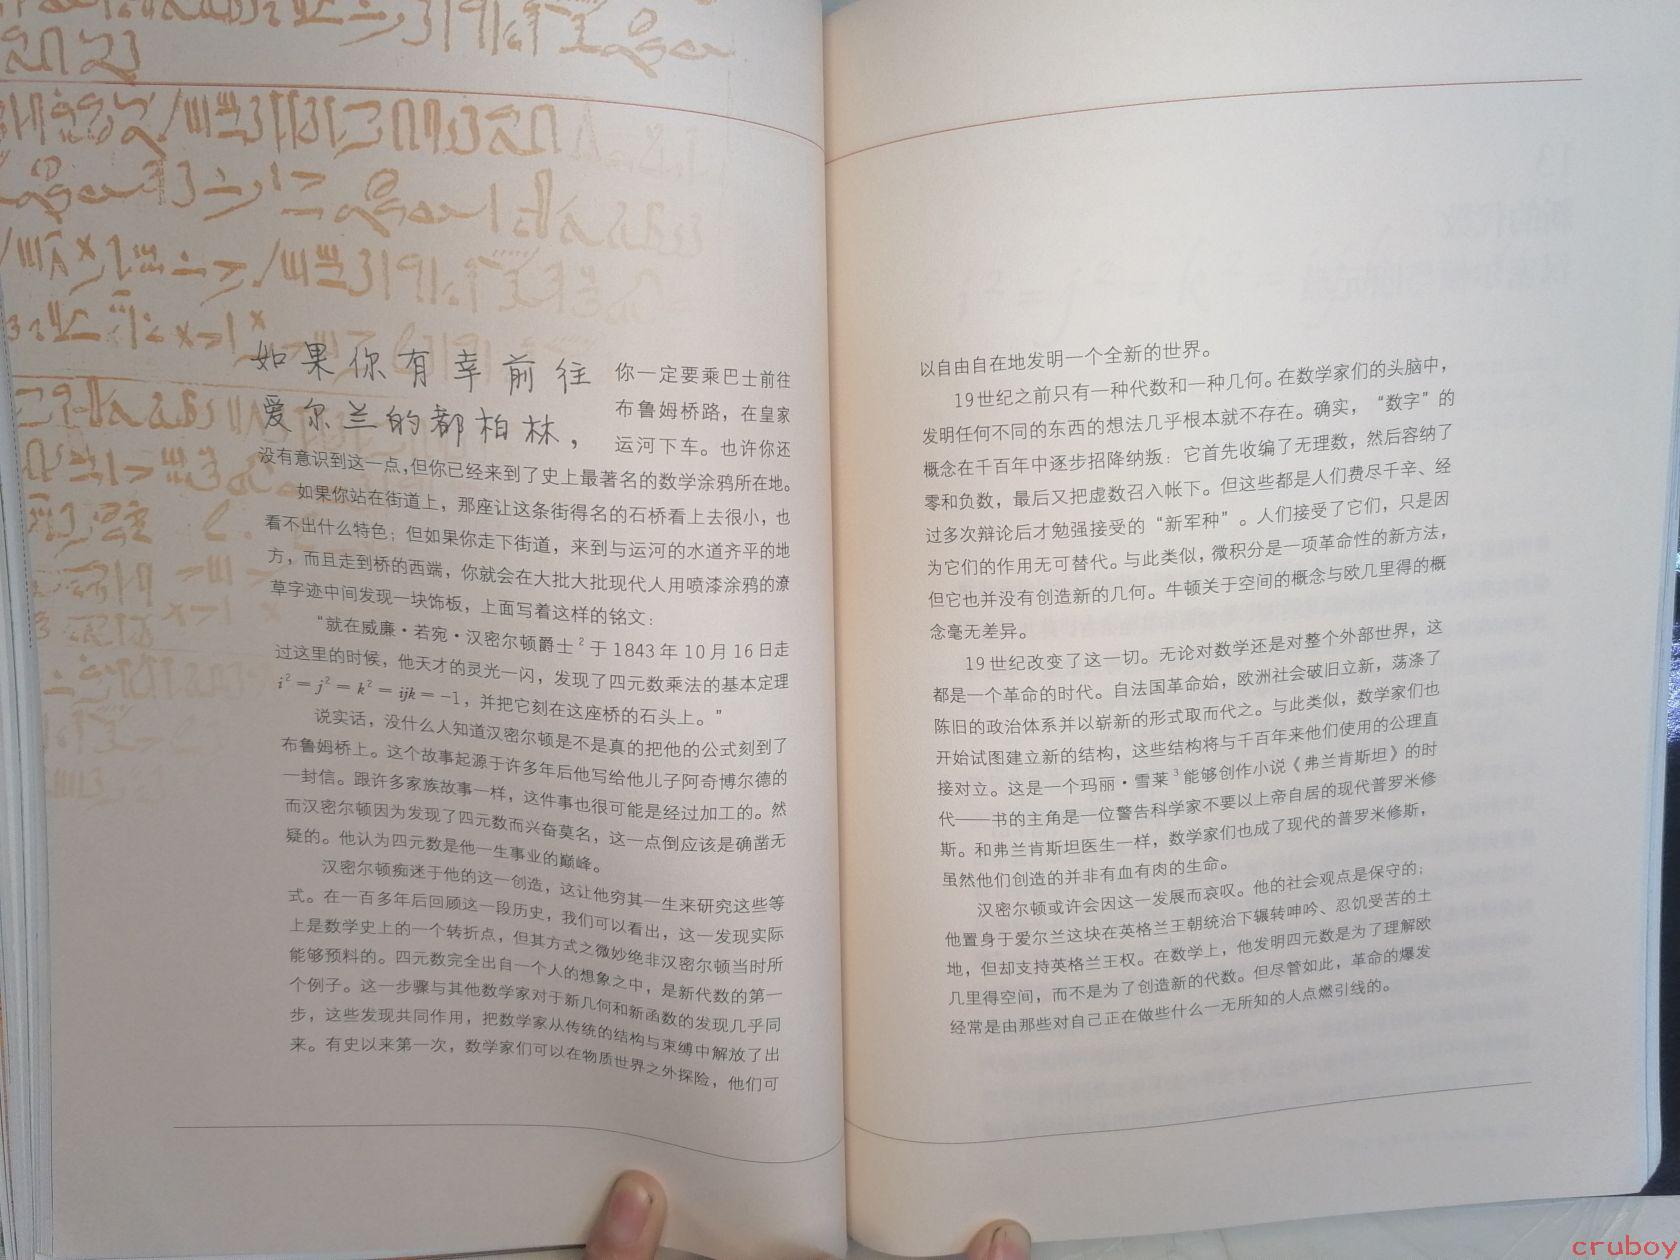 如果你有幸前往
爱尔兰的都柏林，
你一定要乘巴士前往
布鲁姆桥路，在皇家
运河下车。也许你还
没有意识到这一点，但你已经来到了史上最著名的数学涂鸦所在地。
如果你站在街道上，那座让这条街得名的石桥看上去很小，也
看不出什么特色；但如果你走下街道，来到与运河的水道齐平的地
方，而且走到桥的西端，你就会在大批大批现代人用喷漆涂鸦的潦
草字迹中间发现一块饰板，上面写着这样的铭文：
“就在威廉·若宛·汉密尔顿爵士²于1843年10月16日走
过这里的时候，他天才的灵光一闪，发现了四元数乘法的基本定理
i²＝j²＝k²＝ijk＝−1，并把它刻在这座桥的石头上。”
说实话，没什么人知道汉密尔顿是不是真的把他的公式刻到了
布鲁姆桥上。这个故事起源于许多年后他写给他儿子阿奇博尔德的
一封信。跟许多家族故事一样，这件事也很可能是经过加工的。然
而汉密尔顿因为发现了四元数而兴奋莫名，这一点倒应该是确凿无
疑的。他认为四元数是他一生事业的巅峰。
汉密尔顿痴迷于他的这一创造，这让他穷其一生来研究这些等
式。在一百多年后回顾这一段历史，我们可以看出，这一发现实际
上是数学史上的一个转折点，但其方式之微妙绝非汉密尔顿当时所
能够预料的。四元数完全出自一个人的想象之中，是新代数的第一
个例子。这一步骤与其他数学家对于新几何和新函数的发现几乎同
步，这些发现共同作用，把数学家从传统的结构与束缚中解放了出
来。有史以来第一次，数学家们可以在物质世界之外探险，他们可
以自由自在地发明一个全新的世界。
19世纪之前只有一种代数和一种几何。在数学家们的头脑中，
发明任何不同的东西的想法几乎根本就不存在。确实，“数字”的
概念在千百年中逐步招降纳叛：它首先收编了无理数，然后容纳了
零和负数，最后又把虚数召入帐下。但这些都是人们费尽千辛、经
过多次辩论后才勉强接受的“新军种”。人们接受了它们，只是因
为它们的作用无可替代。与此类似，微积分是一项革命性的新方法，
但它也并没有创造新的几何。牛顿关于空间的概念与欧几里得的概
念毫无差异。
19世纪改变了这一切。无论对数学还是对整个外部世界，这
都是一个革命的时代。自法国革命始，欧洲社会破旧立新，荡涤了
陈旧的政治体系并以崭新的形式取而代之。与此类似，数学家们也
开始试图建立新的结构，这些结构将与千百年来他们使用的公理直
接对立。这是一个玛丽·雪莱³能够创作小说《弗兰肯斯坦》的时
代——书的主角是一位警告科学家不要以上帝自居的现代普罗米修
斯。和弗兰肯斯坦医生一样，数学家们也成了现代的普罗米修斯，
虽然他们创造的并非有血有肉的生命。
汉密尔顿或许会因这一发展而哀叹。他的社会观点是保守的；
他置身于爱尔兰这块在英格兰王朝统治下辗转呻吟、忍饥受苦的土
地，但却支持英格兰王权。在数学上，他发明四元数是为了理解欧
几里得空间，而不是为了创造新的代数。但尽管如此，革命的爆发
经常是由那些对自己正在做些什么一无所知的人点燃引线的。
cruboy